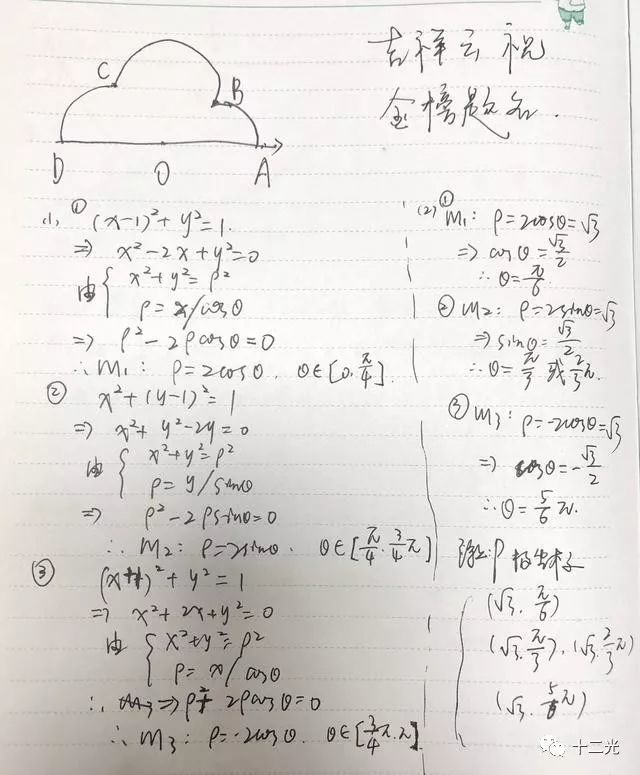 吉祥云祝
金榜题名.
C
B
D
O
A
(1) ① (x-1)²+y²=1.
⇒ x²-2x+y²=0
由 { x²+y²=ρ²
ρ=x/cosθ
⇒ ρ²-2ρcosθ=0
∴ M₁: ρ=2cosθ. θ∈[0,π/4].
② x²+(y-1)²=1
⇒ x²+y²-2y=0
由 { x²+y²=ρ²
ρ=y/sinθ
⇒ ρ²-2ρsinθ=0
∴ M₂: ρ=2sinθ. θ∈[π/4,3/4π]
③ (x+1)²+y²=1
⇒ x²+2x+y²=0
由 { x²+y²=ρ²
ρ=x/cosθ
∴ ⇒ρ²+2ρcosθ=0
∴ M₃: ρ=-2cosθ. θ∈[3/4π,π]
(2) ① M₁: ρ=2cosθ=√3
⇒ cosθ=√3/2
∴ θ=π/6.
② M₂: ρ=2sinθ=√3
⇒ sinθ=√3/2
∴ θ=π/3 或 2/3π.
③ M₃: ρ=-2cosθ=√3
⇒ cosθ=-√3/2
∴ θ=5/6π.
P极坐标
(√3,π/6)
(√3,π/3),(√3,2/3π)
(√3,5/6π)
十二光